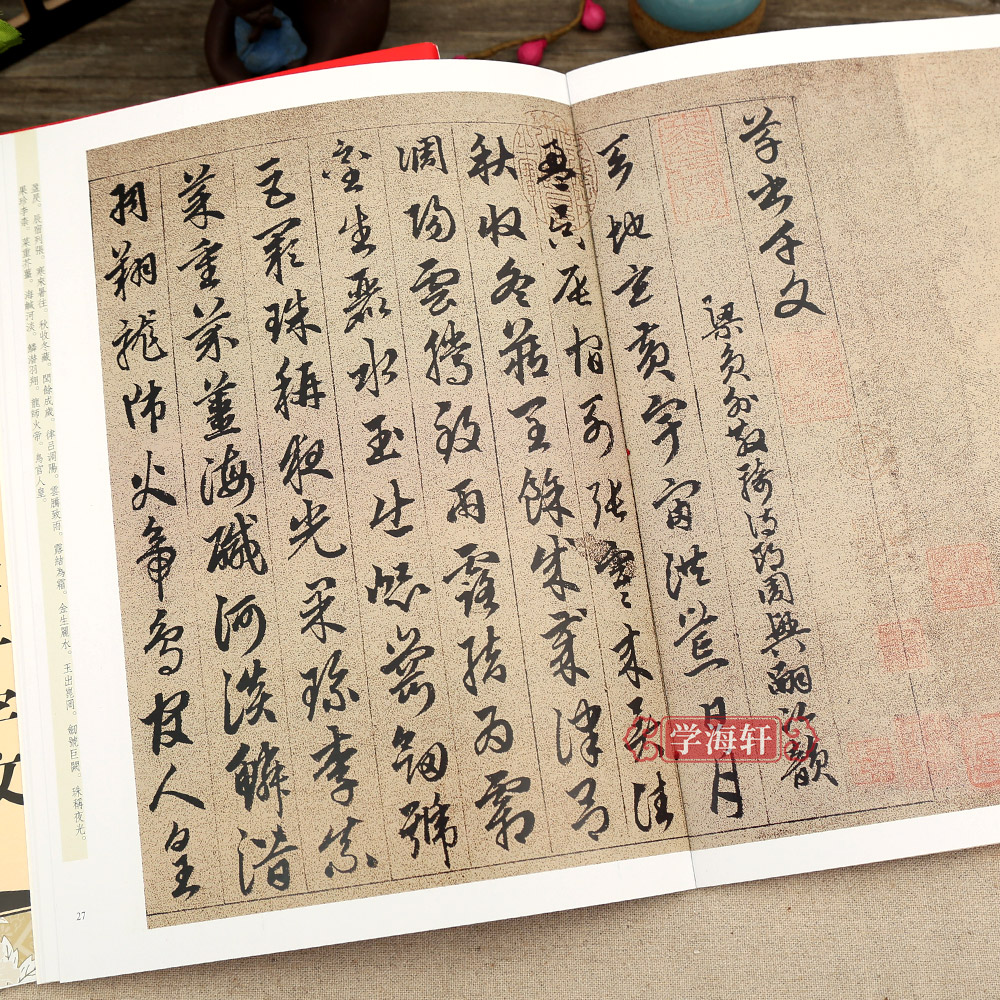 草書千文
梁員外散騎侍郎周興嗣次韻
天地玄黃宇宙洪荒日月
盈昃辰宿列張寒來暑往
秋收冬藏閏餘成歲律呂
調陽雲騰致雨露結為霜
金生麗水玉出崑崗劒號
巨闕珠稱夜光果珍李柰
菜重芥薑海鹹河淡鱗潛
羽翔龍師火帝鳥官人皇
盈昃。辰宿列張。寒來暑往。秋收冬藏。閏餘成歲。律呂調陽。雲騰致雨。露結為霜。金生麗水。玉出崑岡。劒號巨闕。珠稱夜光。
果珍李柰。菜重芥薑。海鹹河淡。鱗潛羽翔。龍師火帝。鳥官人皇。
27
学海轩